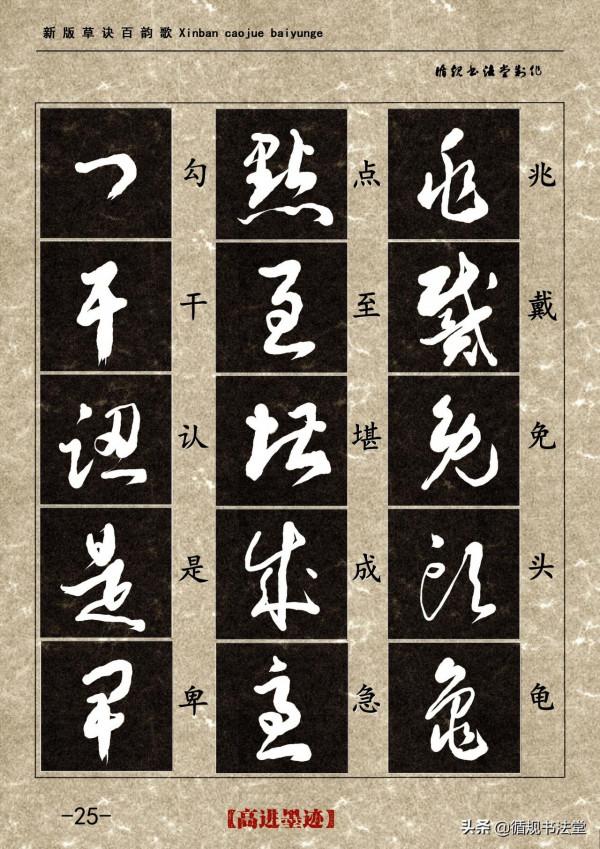 新版草诀百韵歌 Xinban caojue baiyunge
循规书法堂制作
兆戴免頭龜
兆戴免头龟
點至堪成急
点至堪成急
勾干認是卑
勾干认是卑
-25-
【高进墨迹】
头条 @循规书法堂